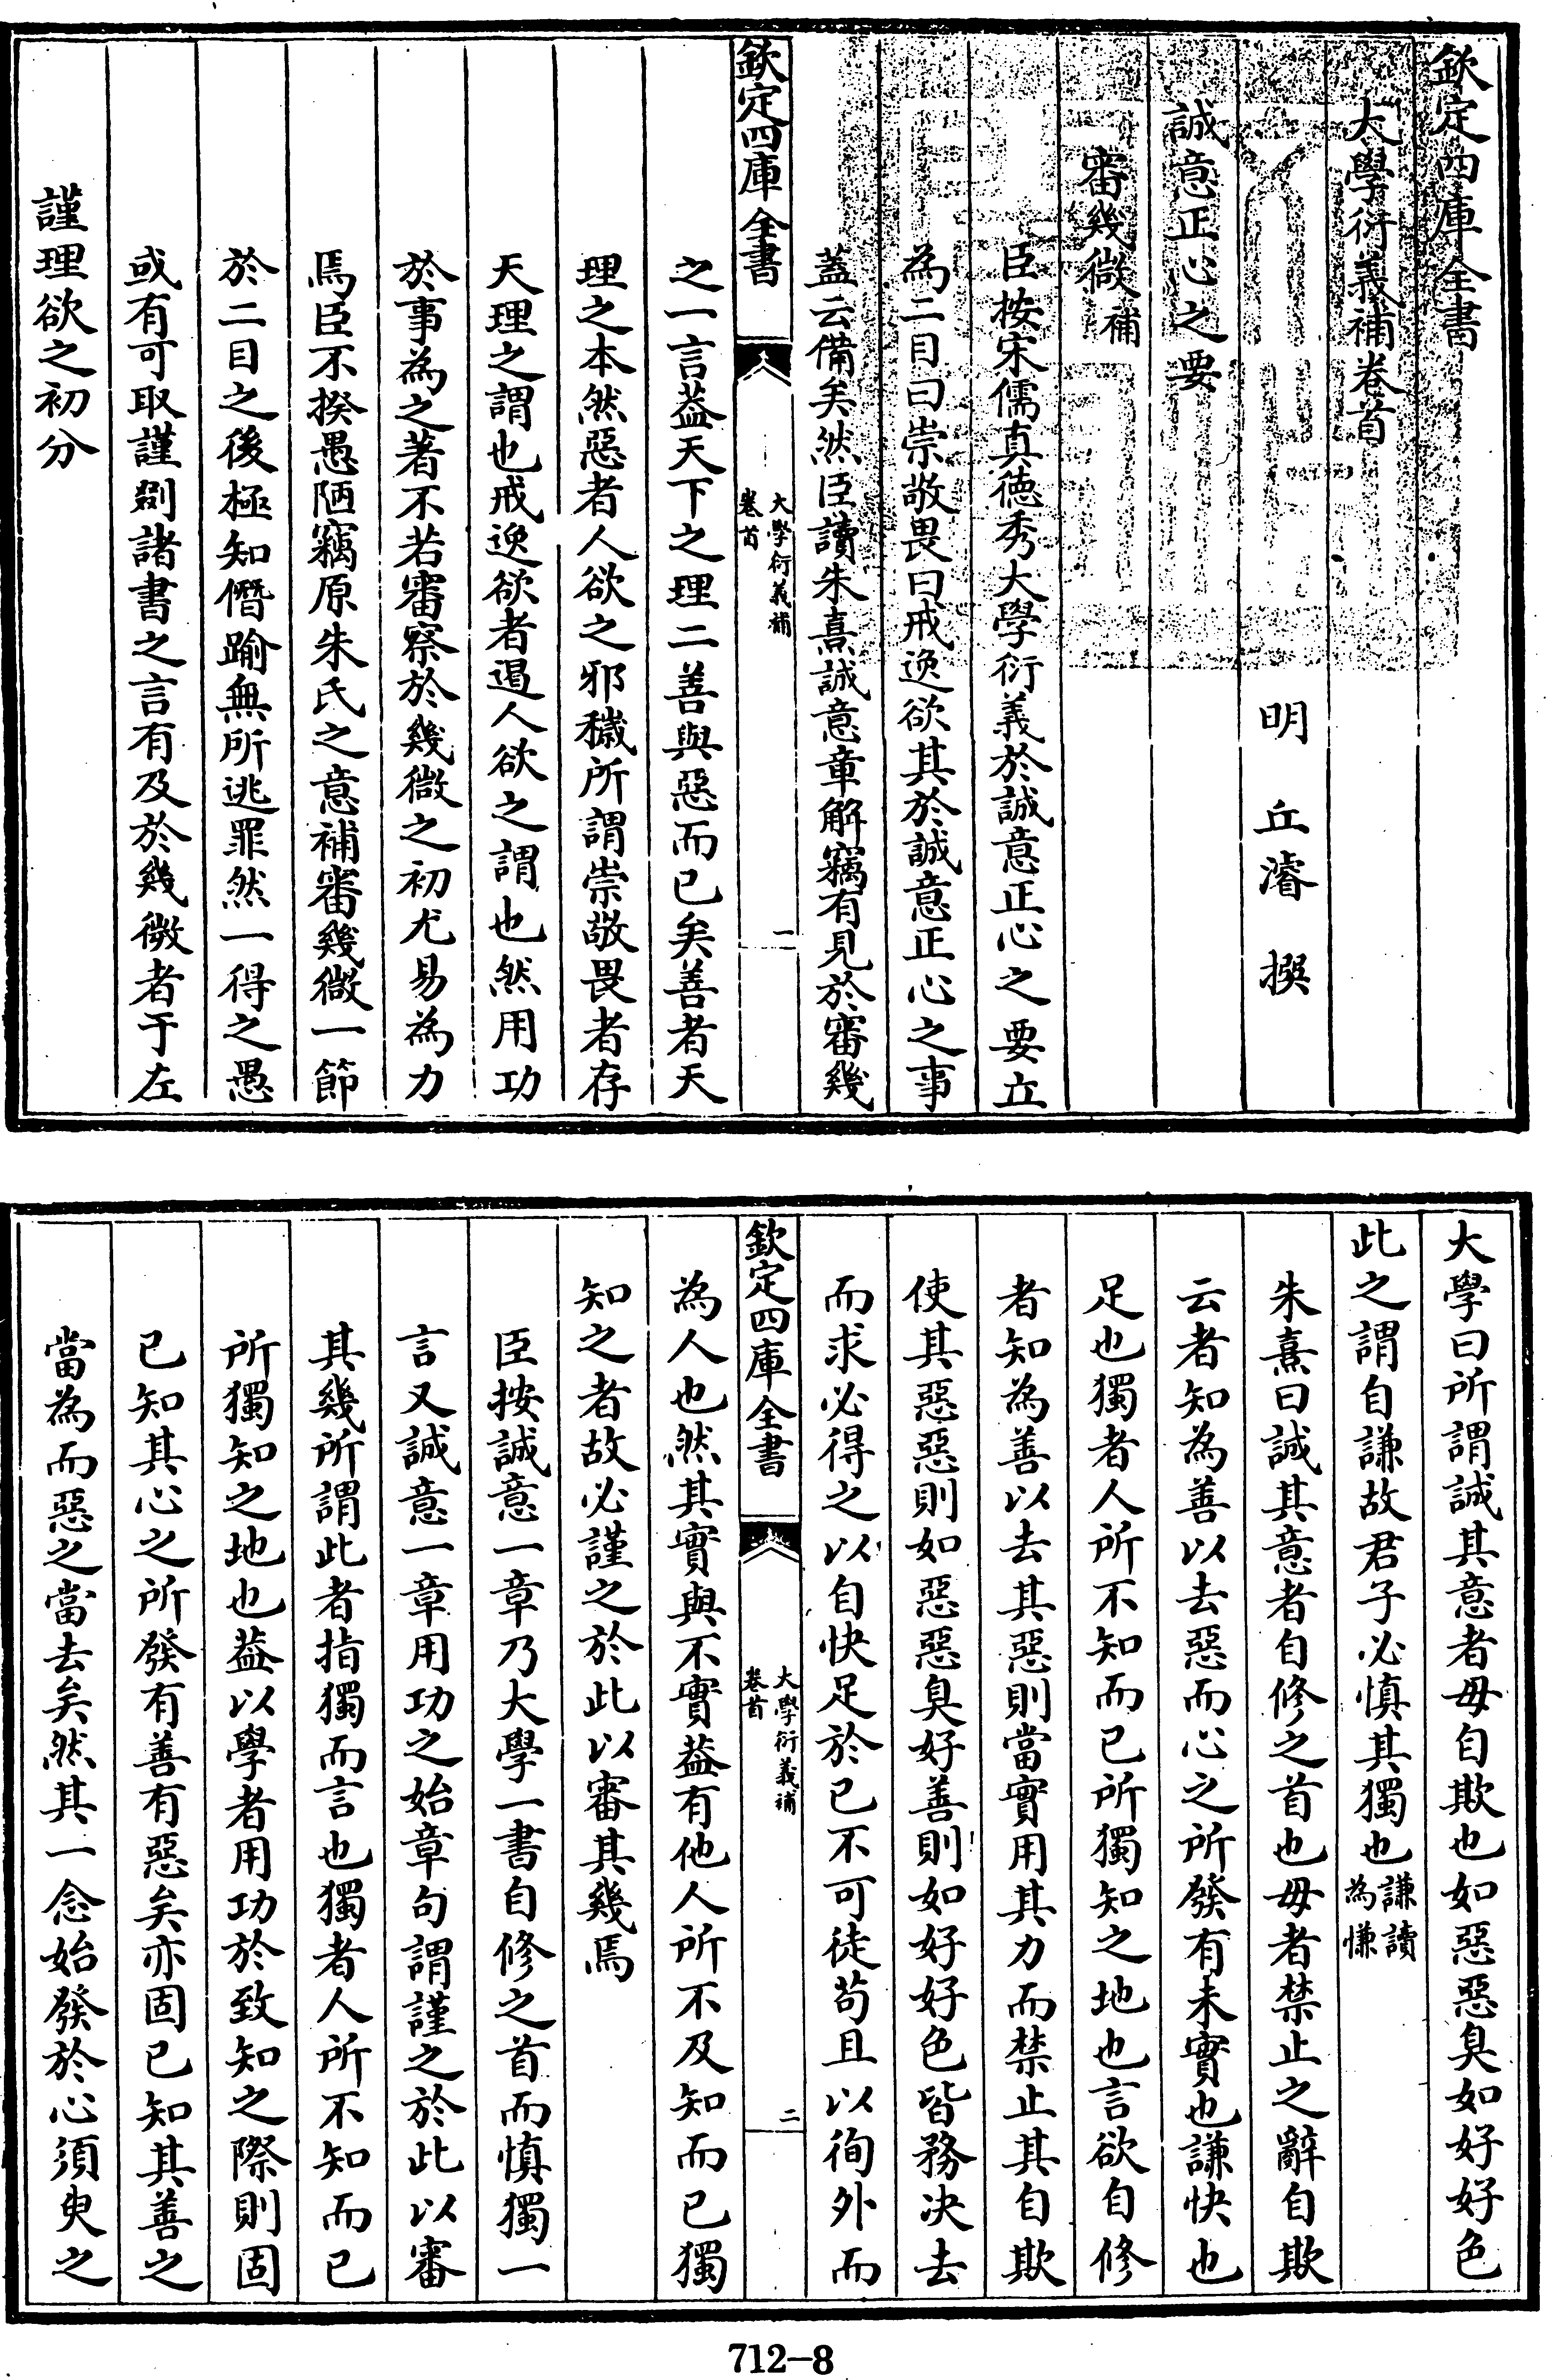 欽定四庫全書
大學衍義補卷首
明 丘濬 撰
誠意正心之要
審幾微補
臣按宋儒真德秀大學衍義於誠意正心之要立
為二目曰崇敬畏曰戒逸欲其於誠意正心之事
蓋云備矣然臣讀朱熹誠意章解竊有見於審幾
欽定四庫全書
大學衍義補
卷首
一
之一言蓋天下之理二善與惡而已矣善者天
理之本然惡者人欲之邪穢所謂崇敬畏者存
天理之謂也戒逸欲者遏人欲之謂也然用功
於事為之著不若審察於幾微之初尤易為力
焉臣不揆愚陋竊原朱氏之意補審幾微一節
於二目之後極知僭踰無所逃罪然一得之愚
或有可取謹剟諸書之言有及於幾微者于左
謹理欲之初分
大學曰所謂誠其意者毋自欺也如惡惡臭如好好色
此之謂自謙故君子必慎其獨也謙讀為慊
朱熹曰誠其意者自修之首也毋者禁止之辭自欺
云者知為善以去惡而心之所發有未實也謙快也
足也獨者人所不知而已所獨知之地也言欲自修
者知為善以去其惡則當實用其力而禁止其自欺
使其惡惡則如惡惡臭好善則如好好色皆務決去
而求必得之以自快足於已不可徒苟且以徇外而
欽定四庫全書
大學衍義補
卷首
二
為人也然其實與不實蓋有他人所不及知而已獨
知之者故必謹之於此以審其幾焉
臣按誠意一章乃大學一書自修之首而慎獨一
言又誠意一章用功之始章句謂謹之於此以審
其幾所謂此者指獨而言也獨者人所不知而已
所獨知之地也蓋以學者用功於致知之際則固
已知其心之所發有善有惡矣亦固已知其善之
當為而惡之當去矣然其一念始發於心須臾之
712-8